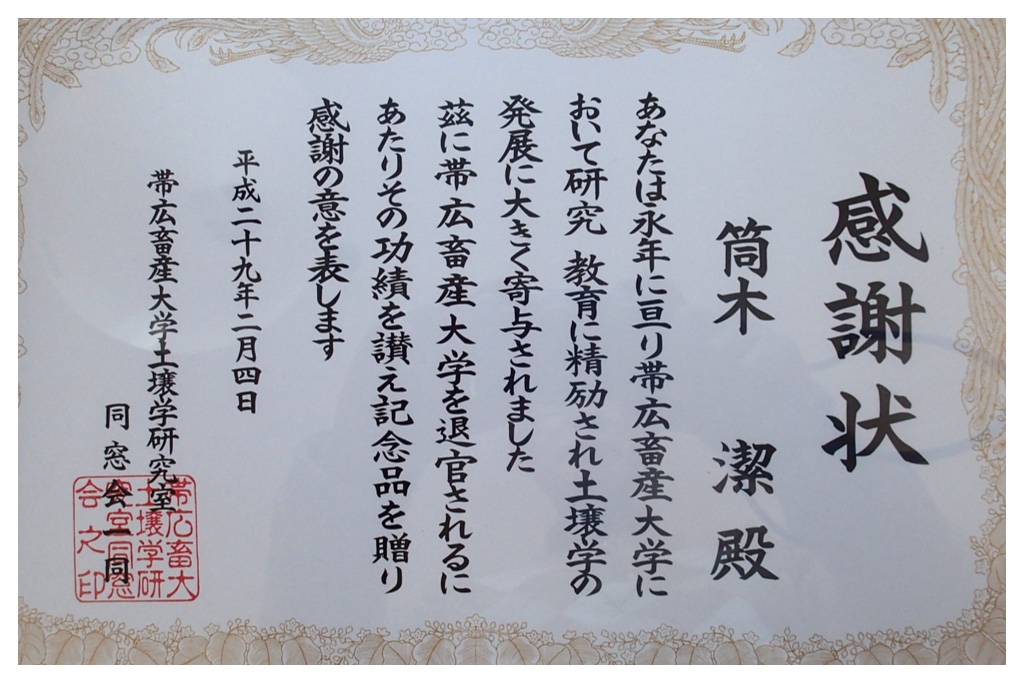 感謝状
筒木 潔 殿
あなたは永年に亘り帯広畜産大学に
おいて研究 教育に精励され土壌学の
発展に大きく寄与されました
茲に帯広畜産大学を退官されるに
あたりその功績を讃え記念品を贈り
感謝の意を表します
平成二十九年二月四日
帯広畜産大学土壌学研究室
同窓会一同
帯広畜大
土壌学研
究室同窓
会之印